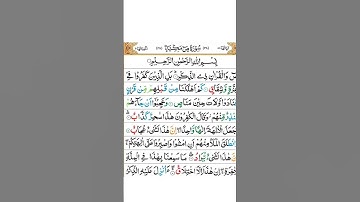 سُوْرَةُ صٓ مَكِّيَّةٌ
بِسْمِ اللّٰهِ الرَّحْمٰنِ الرَّحِيْمِ
صٓ وَالْقُرْاٰنِ ذِى الذِّكْرِ بَلِ الَّذِيْنَ كَفَرُوْا فِىْ
عِزَّةٍ وَّشِقَاقٍ كَمْ اَهْلَكْنَا مِنْ قَبْلِهِمْ مِّنْ قَرْنٍ
فَنَادَوْا وَّلَاتَ حِيْنَ مَنَاصٍ وَعَجِبُوْٓا اَنْ جَآءَهُمْ
مُّنْذِرٌ مِّنْهُمْ وَقَالَ الْكٰفِرُوْنَ هٰذَا سٰحِرٌ كَذَّابٌ
اَجَعَلَ الْاٰلِهَةَ اِلٰهًا وَّاحِدًا اِنَّ هٰذَا لَشَىْءٌ عُجَابٌ
وَانْطَلَقَ الْمَلَاُ مِنْهُمْ اَنِ امْشُوْا وَاصْبِرُوْا عَلٰٓى اٰلِهَتِكُمْ
اِنَّ هٰذَا لَشَىْءٌ يُّرَادُ مَا سَمِعْنَا بِهٰذَا فِى الْمِلَّةِ
الْاٰخِرَةِ اِنْ هٰذَآ اِلَّا اخْتِلَاقٌ ءَاُنْزِلَ عَلَيْهِ الذِّكْرُ